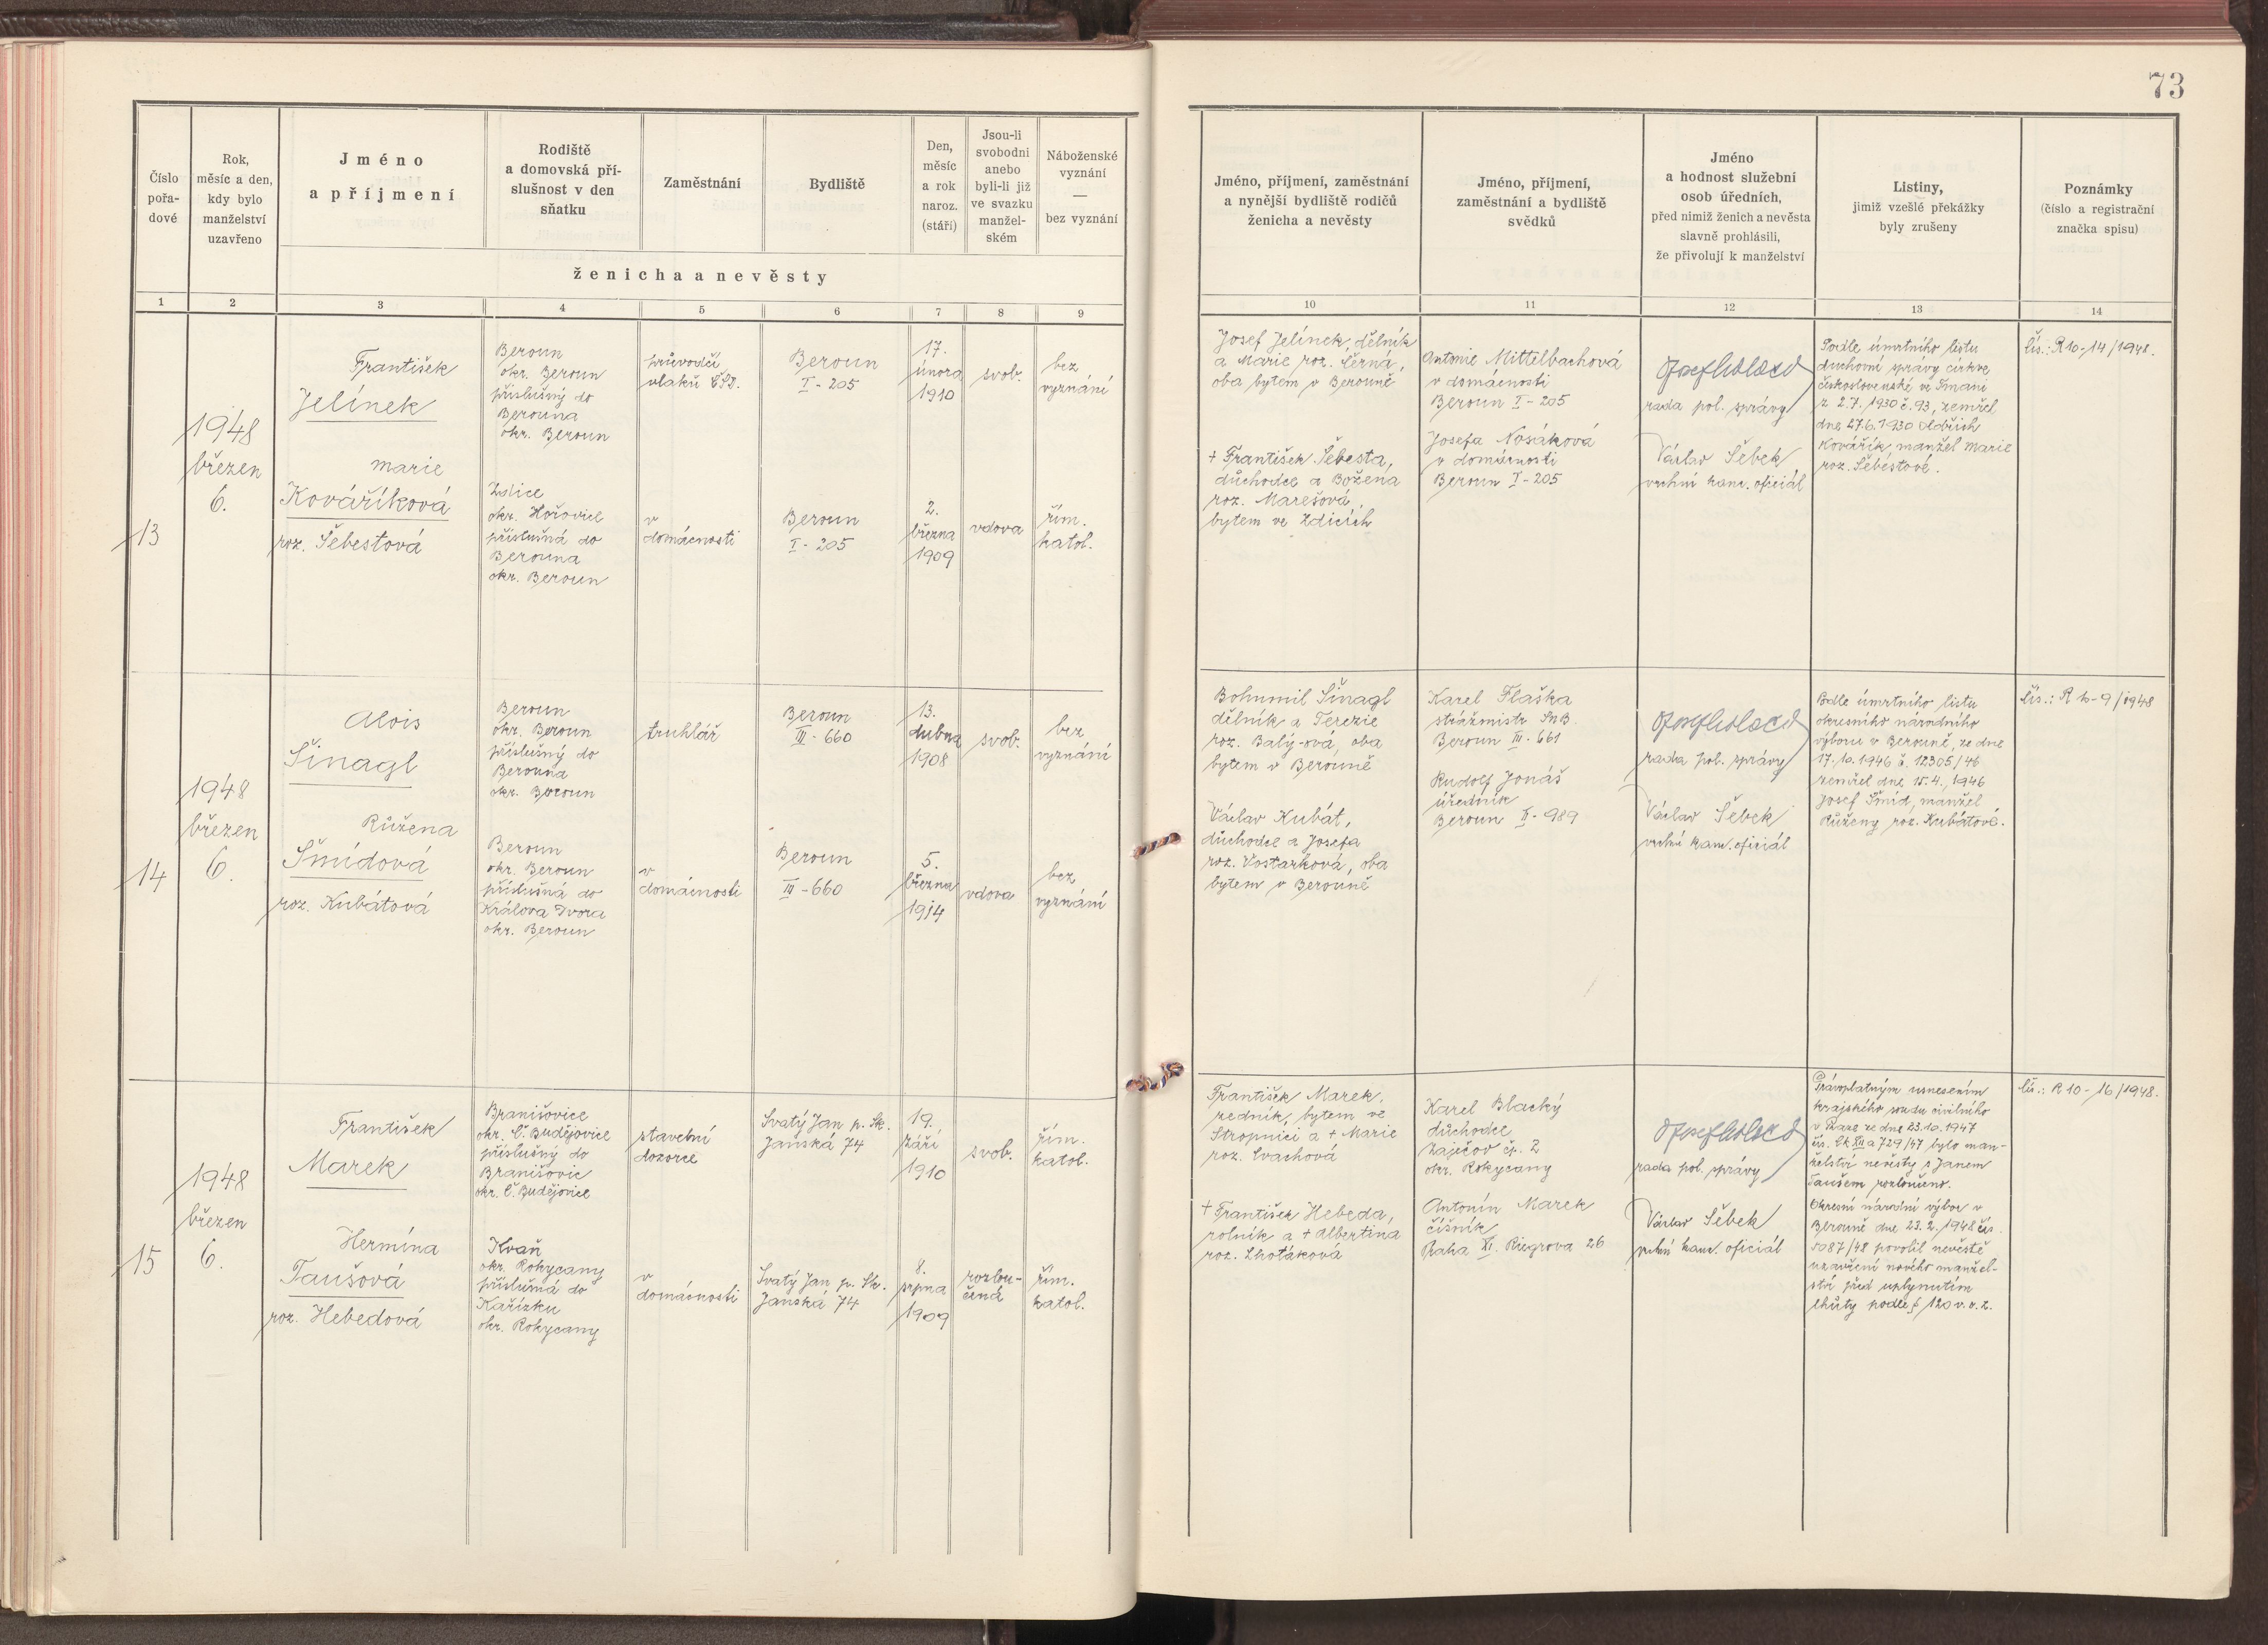 73
Číslo
pořa-
dové
Rok,
měsíc a den,
kdy bylo
manželství
uzavřeno
Jméno
a příjmení
Rodiště
a domovská pří-
slušnost v den
sňatku
Zaměstnání
Bydliště
Den,
měsíc
a rok
naroz.
(stáří)
Jsou-li
svobodni
anebo
byli-li již
ve svazku
manžel-
ském
Náboženské
vyznání
—
bez vyznání
ženicha a nevěsty
Jméno, příjmení, zaměstnání
a nynější bydliště rodičů
ženicha a nevěsty
Jméno, příjmení,
zaměstnání a bydliště
svědků
Jméno
a hodnost služební
osob úředních,
před nimiž ženich a nevěsta
slavně prohlásili,
že přivolují k manželství
Listiny,
jimiž vzešlé překážky
byly zrušeny
Poznámky
(číslo a registrační
značka spisu)
1 2 3 4 5 6 7 8 9 10 11 12 13 14
13
1948
březen
6.
František
Jelínek
Beroun
okr. Beroun
příslušný do
Berouna
okr. Beroun
průvodčí
vlaků ČSD.
Beroun
I - 205
17.
února
1910
svob.
bez
vyznání
Marie
Kováříková
roz. Šebestová
Zdice
okr. Hořovice
příslušná do
Berouna
okr. Beroun
v
domácnosti
Beroun
I - 205
2.
března
1909
vdova
řím.
katol.
Josef Jelínek, dělník
a Marie roz. Černá,
oba bytem v Berouně
+ František Šebesta,
důchodce a Božena
roz. Marešová,
bytem ve Zdicích
Antonie Mittelbachová
v domácnosti
Beroun I - 205
Josefa Nosáková
v domácnosti
Beroun I - 205
rada pol. správy
Václav Šebek
vrchní kanc. oficiál
Podle úmrtního listu
duchovní správy církve
československé ve
z 2.7.1930 č. 93, zemřel
dne 27.6.1930 Oldřich
Kovářík, manžel Marie
roz. Šebestové.
čís.: R 10-14/1948.
14
1948
březen
6.
Alois
Šinagl
Beroun
okr. Beroun
příslušný do
Berouna
okr. Beroun
truhlář
Beroun
III - 660
13.
dubna
1908
svob.
bez
vyznání
Růžena
Šmídová
roz. Kubátová
Beroun
okr. Beroun
příslušná do
Králova Dvora
okr. Beroun
v
domácnosti
Beroun
III - 660
5.
března
1914
vdova
bez
vyznání
Bohumil Šinagl
dělník a Terezie
roz. Balý-ová, oba
bytem v Berouně
Václav Kubát,
důchodce a Josefa
roz. Vostarková, oba
bytem v Berouně
Karel Flaška
strážmistr SNB.
Beroun III - 661
Rudolf Jonáš
úředník
Beroun II - 989
rada pol. správy
Václav Šebek
vrchní kanc. oficiál
Podle úmrtního listu
okresního národního
výboru v Berouně, ze dne
17.10.1946 č. 12305/46
zemřel dne 15.4.1946
Josef Šmíd, manžel
Růženy roz. Kubátové.
čís.: R 10-9/1948
15
1948
březen
6.
František
Marek
Branišovice
okr. Č. Budějovice
příslušný do
Branišovic
okr. Č. Budějovice
stavební
dozorce
Svatý Jan p. Sk.
Janská 74
19.
září
1910
svob.
řím.
katol.
Hermína
Taušová
roz. Hebedová
Kvaň
okr. Rokycany
příslušná do
Kařízku
okr. Rokycany
v
domácnosti
Svatý Jan p. Sk.
Janská 74
8.
srpna
1909
rozlou-
čená
řím.
katol.
František Marek,
zedník, bytem ve
Stropnici a + Marie
roz. Cvachová
+ František Hebeda,
rolník a + Albertina
roz. Lhotáková
Karel Blacký
důchodce
Zaječov čp. 2
okr. Rokycany
Antonín Marek
číšník
Praha XI. Riegrova 26
rada pol. správy
Václav Šebek
vrchní kanc. oficiál
Právoplatným usnesením
krajského soudu civilního
v Praze ze dne 23.10.1947
čís. Ck XII a 729/47 bylo man-
želství nevěsty s Janem
Taušem rozloučeno.
Okresní národní výbor v
Berouně dne 23.2.1948 čís.
5087/48 povolil nevěstě
uzavření nového manžel-
ství před uplynutím
lhůty podle § 120 o. o. z.
čís.: R 10-16/1948.